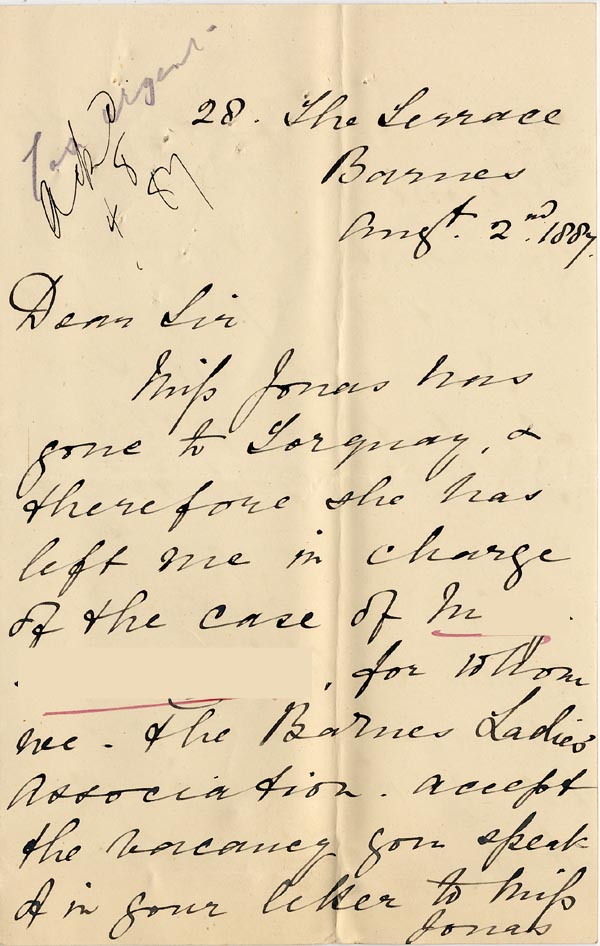 urgent
Ackd
4 8 87
28. The Terrace
Barnes
Augt. 2nd. 1887.
Dear Sir
Miss Jonas has
gone to Torquay, &
therefore she has
left me in charge
of the case of M
, for whom
we - the Barnes Ladies'
Association. accept
the vacancy you speak
of in your letter to Miss
Jonas